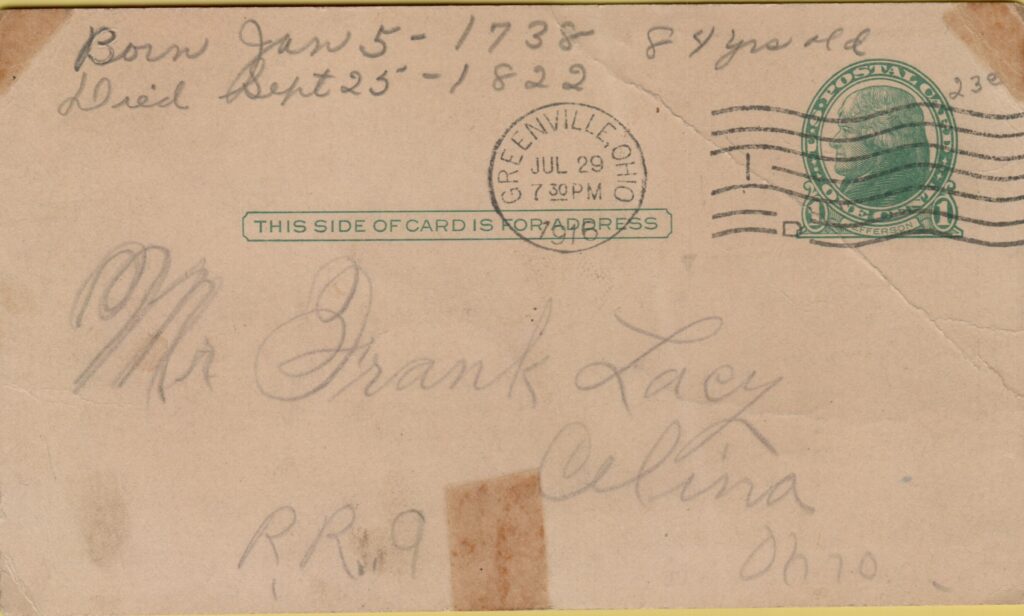 Born Jan 5 - 1738 84 yrs old
Died Sept 25 - 1822
23c
U.S. POSTAL CARD
GREENVILLE, OHIO
JUL 29
7 30 PM
1916
1 ONE CENT 1
JEFFERSON
THIS SIDE OF CARD IS FOR ADDRESS
Mr Frank Lacy
Celina
R.R. 9 Ohio